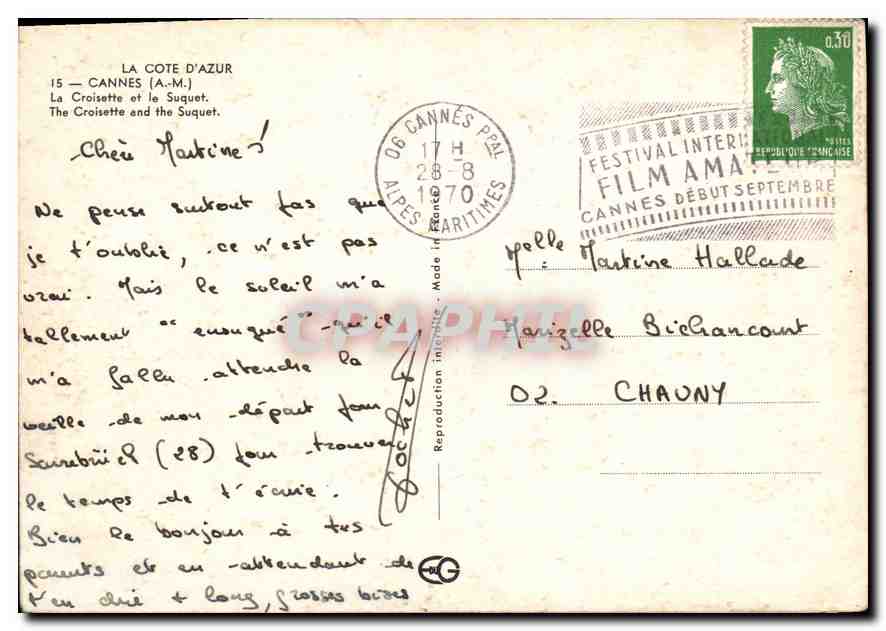 LA COTE D'AZUR
15 — CANNES (A.-M.)
La Croisette et le Suquet.
The Croisette and the Suquet.
0,30
POSTES
REPUBLIQUE FRANÇAISE
06 CANNES PPAL
17 H
28-8
1970
ALPES-MARITIMES
FESTIVAL INTER
FILM AMATEUR
CANNES DÉBUT SEPTEMBRE
Chère Martine!
Ne pense surtout pas que
je t'oublie, ce n'est pas
vrai. Mais le soleil m'a
tellement qu'il
m'a fallu attendre la
veille de mon départ pour
(28) pour trouver
le temps de t'écrire.
Bien le bonjour à tes
parents et en attendant de
t'en dire + long, grosses bises
Melle Martine Hallade
Marizelle Bichancourt
02. CHAUNY
Reproduction interdite - Made in France
CPAPHIL